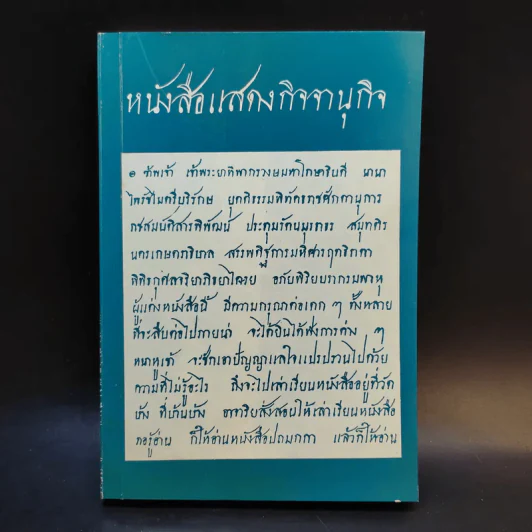 หนังสือแสดงกิจจานุกิจ
๑ ข้าพเจ้า เจ้าพระยาทิพากรวงษมหาโกษาธิบดี นานา
ไพรัชไมตรีบริรักษ ยุติธรรมพิทักธราชศักดานุการ
ราชสมบัติสารพิพัฒน์ ประดุมรัตนมุรธาธร สมุทศิร
นครเกษตราธิบาล สรรพดิฐการมหิศวฤทธิกดา
อภัยพิริยบรากรมพาหุ
ผู้แต่งหนังสือนี้ มีความกรุณาต่อเดก ๆ ทั้งหลาย
ที่จะสืบต่อไปภายน่า จะได้ยินได้ฟังการต่าง ๆ
หนาหูเข้า จะชักเอาปัญญาแลใจแปรปรวนไปด้วย
ความที่ไม่รู้อะไร ถึงจะไปเล่าเรียนหนังสืออยู่ที่วัด
บ้าง ที่บ้านบ้าง อาจาริยสั่งสอนให้เล่าเรียนหนังสือ
พอรู้อ่าน ก็ให้อ่านหนังสือปถมกกา แล้วก็ให้อ่าน